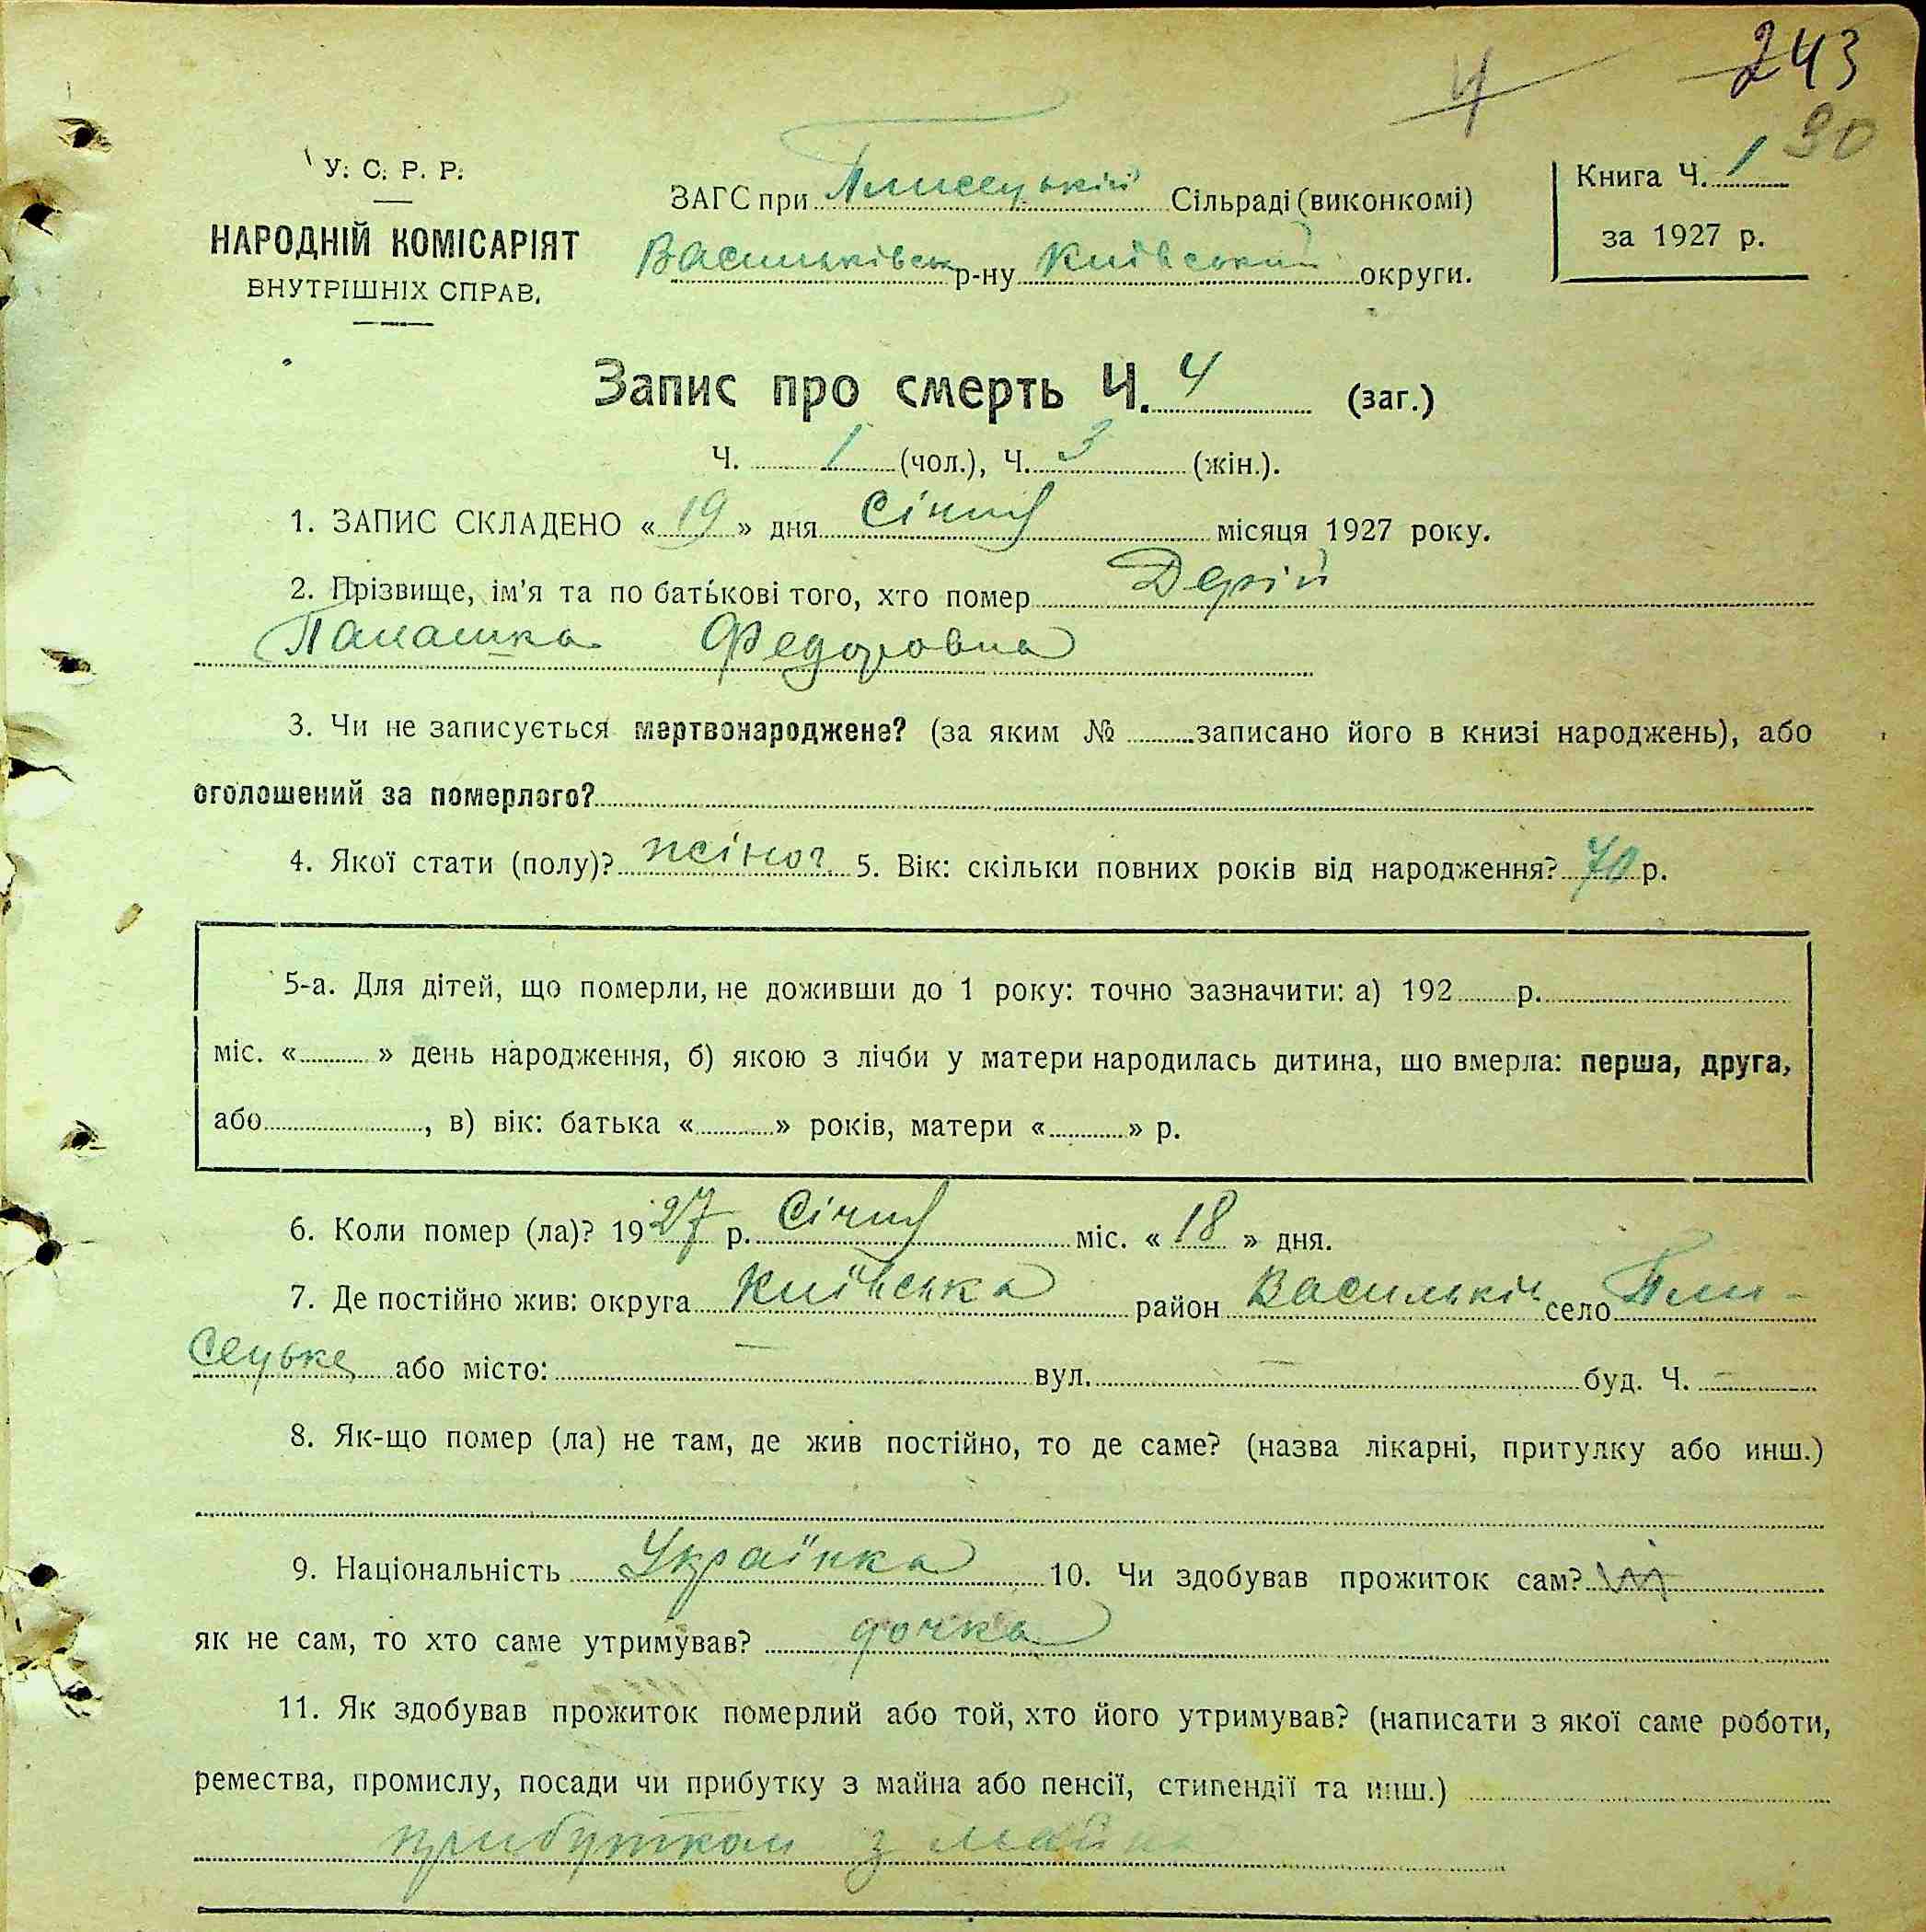 243
4
90
У. С. Р. Р.
НАРОДНІЙ КОМІСАРІЯТ
ВНУТРІШНІХ СПРАВ.
ЗАГС при Плисецькій Сільраді (виконкомі)
Васильківськ р-ну Київський округи.
Книга Ч. 1
за 1927 р.
Запис про смерть Ч. 4 (заг.)
Ч. 1 (чол.), Ч. 3 (жін.).
1. ЗАПИС СКЛАДЕНО « 19 » дня Січня місяця 1927 року.
2. Прізвище, ім'я та по батькові того, хто помер Дерій
Палашка Федоровна
3. Чи не записується мертвонароджене? (за яким № записано його в книзі народжень), або
оголошений за померлого?
4. Якої стати (полу)? жіноч. 5. Вік: скільки повних років від народження? 70 р.
5-а. Для дітей, що померли, не доживши до 1 року: точно зазначити: а) 192 р.
міс. « » день народження, б) якою з лічби у матери народилась дитина, що вмерла: перша, друга,
або , в) вік: батька « » років, матери « » р.
6. Коли помер (ла)? 1927 р. Січня міс. « 18 » дня.
7. Де постійно жив: округа Київська район Васильків село Пли-
сецьке або місто: — вул. — буд. Ч. —
8. Як-що помер (ла) не там, де жив постійно, то де саме? (назва лікарні, притулку або инш.)
9. Національність Українка 10. Чи здобував прожиток сам? ні
як не сам, то хто саме утримував? дочка
11. Як здобував прожиток померлий або той, хто його утримував? (написати з якої саме роботи,
ремества, промислу, посади чи прибутку з майна або пенсії, стипендії та инш.)
прибутком з майна